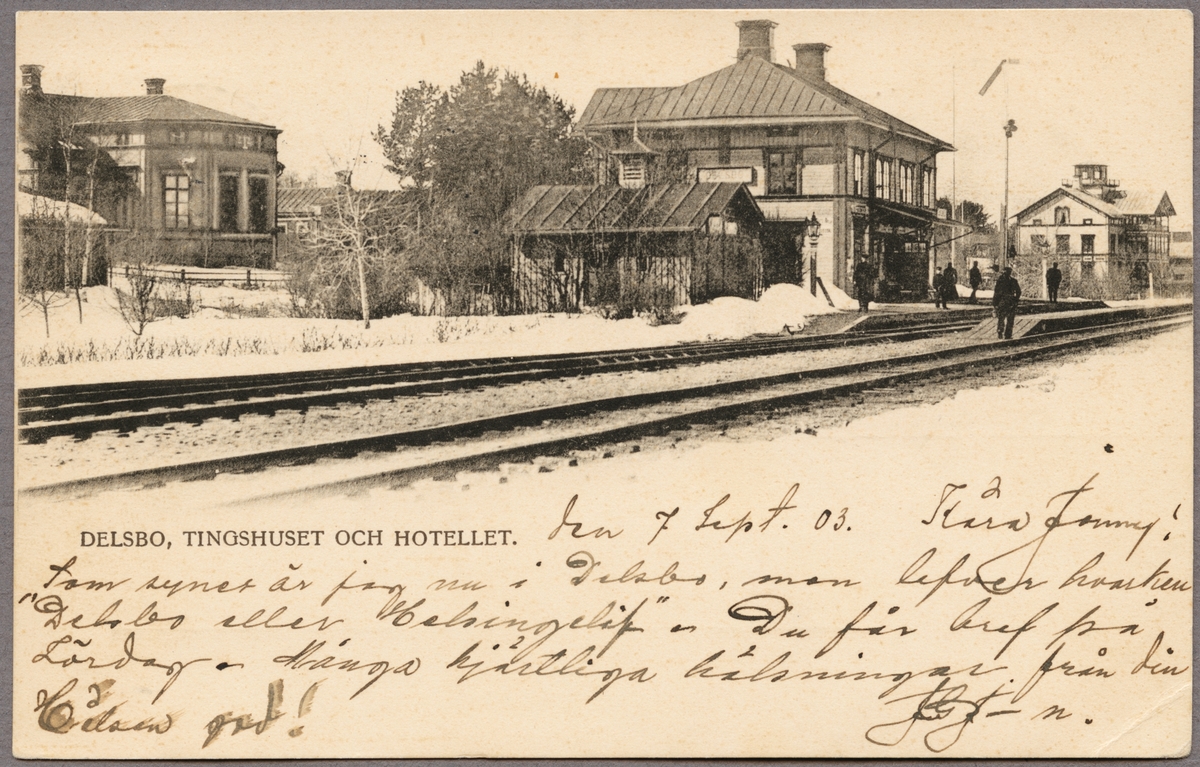 DELSBO, TINGSHUSET OCH HOTELLET.
den 7 Sept. 03. Kära Jenny!
Som synes är jag nu i Delsbo, men lefver hvarken
"Delsbo eller Helsingelif". Du får bref på
Lördag. Många hjärtliga hälsningar från din
Hälsa god!